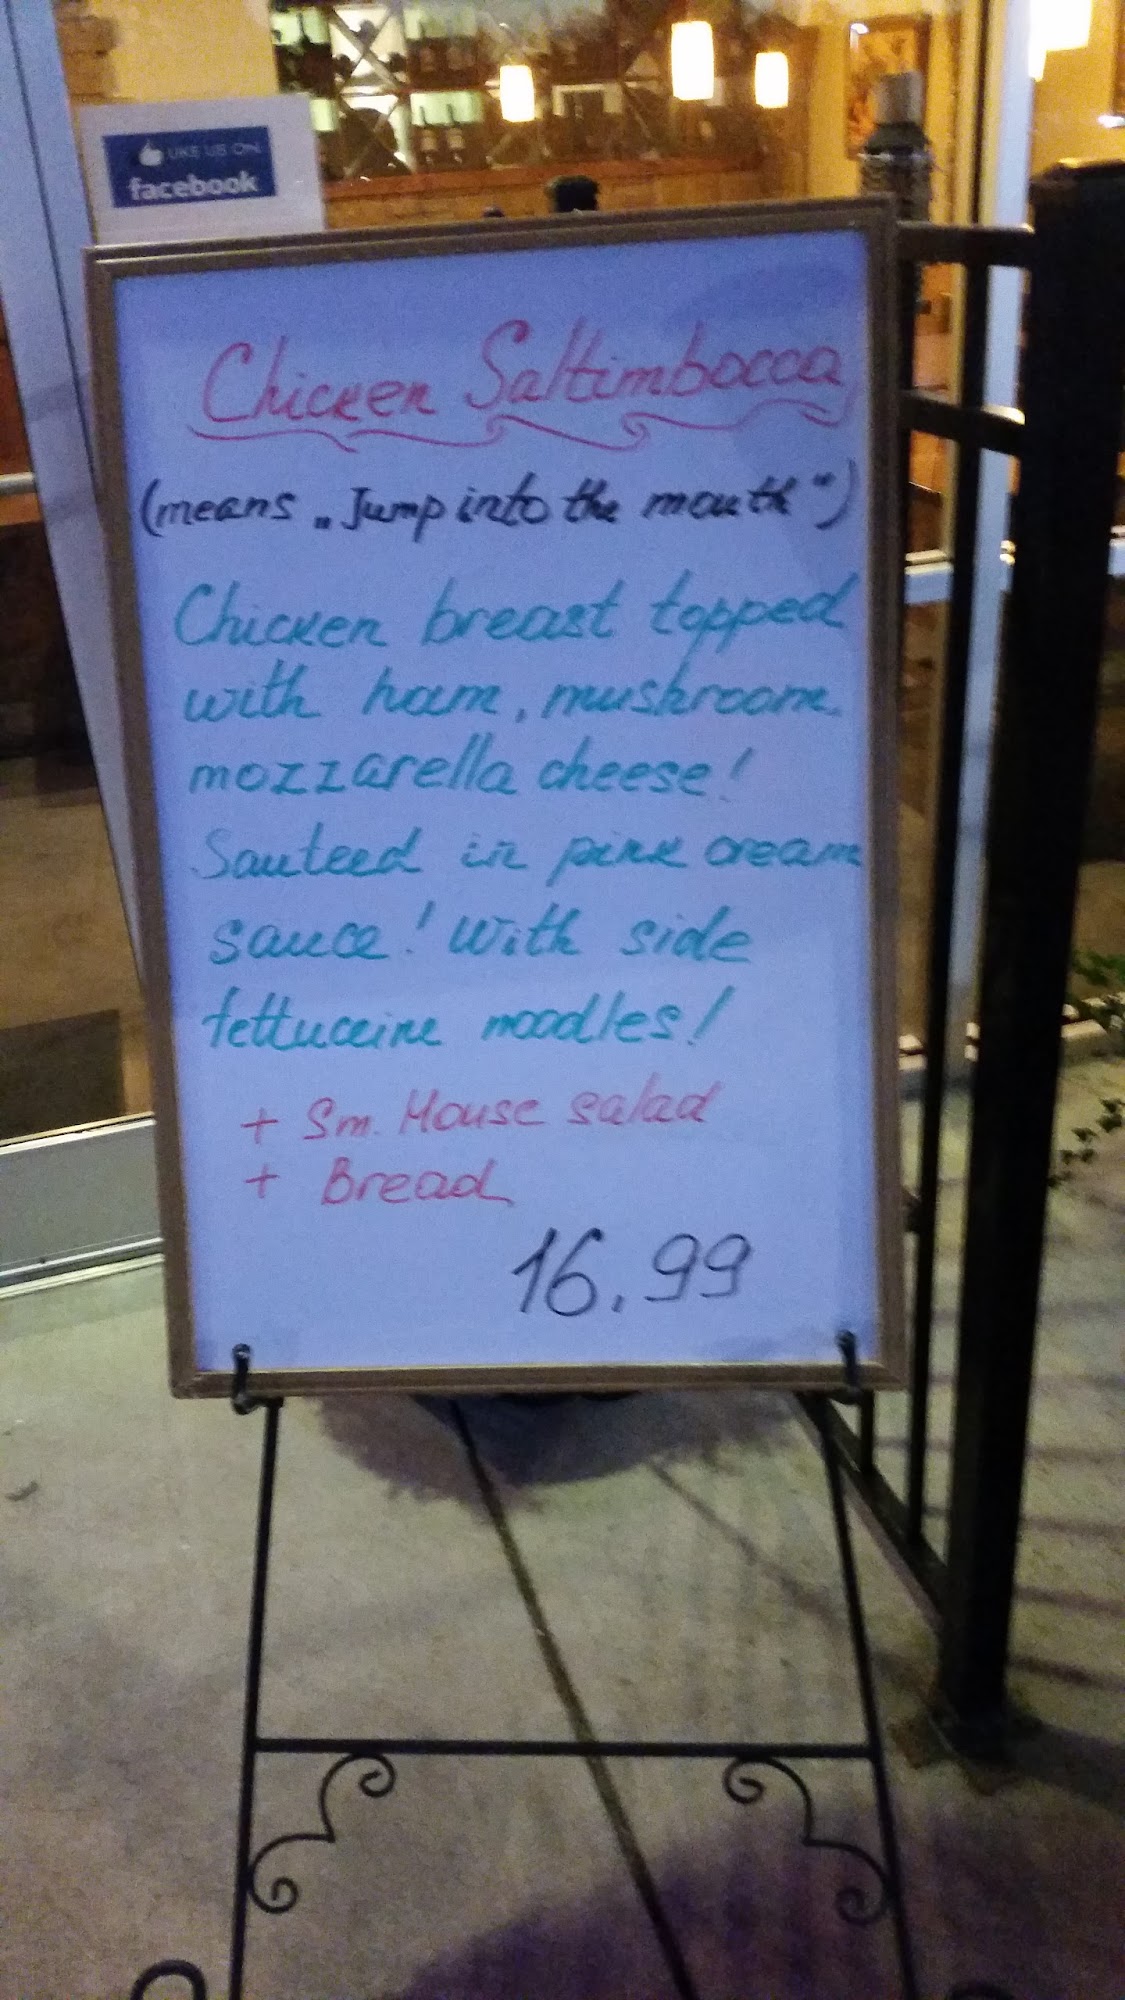 LIKE US ON
facebook
Chicken Saltimbocca
(means „Jump into the mouth“)
Chicken breast topped
with ham, mushroom,
mozzarella cheese!
Sauteed in pink cream
sauce! With side
fettuccine noodles!
+ Sm. House salad
+ Bread
16.99